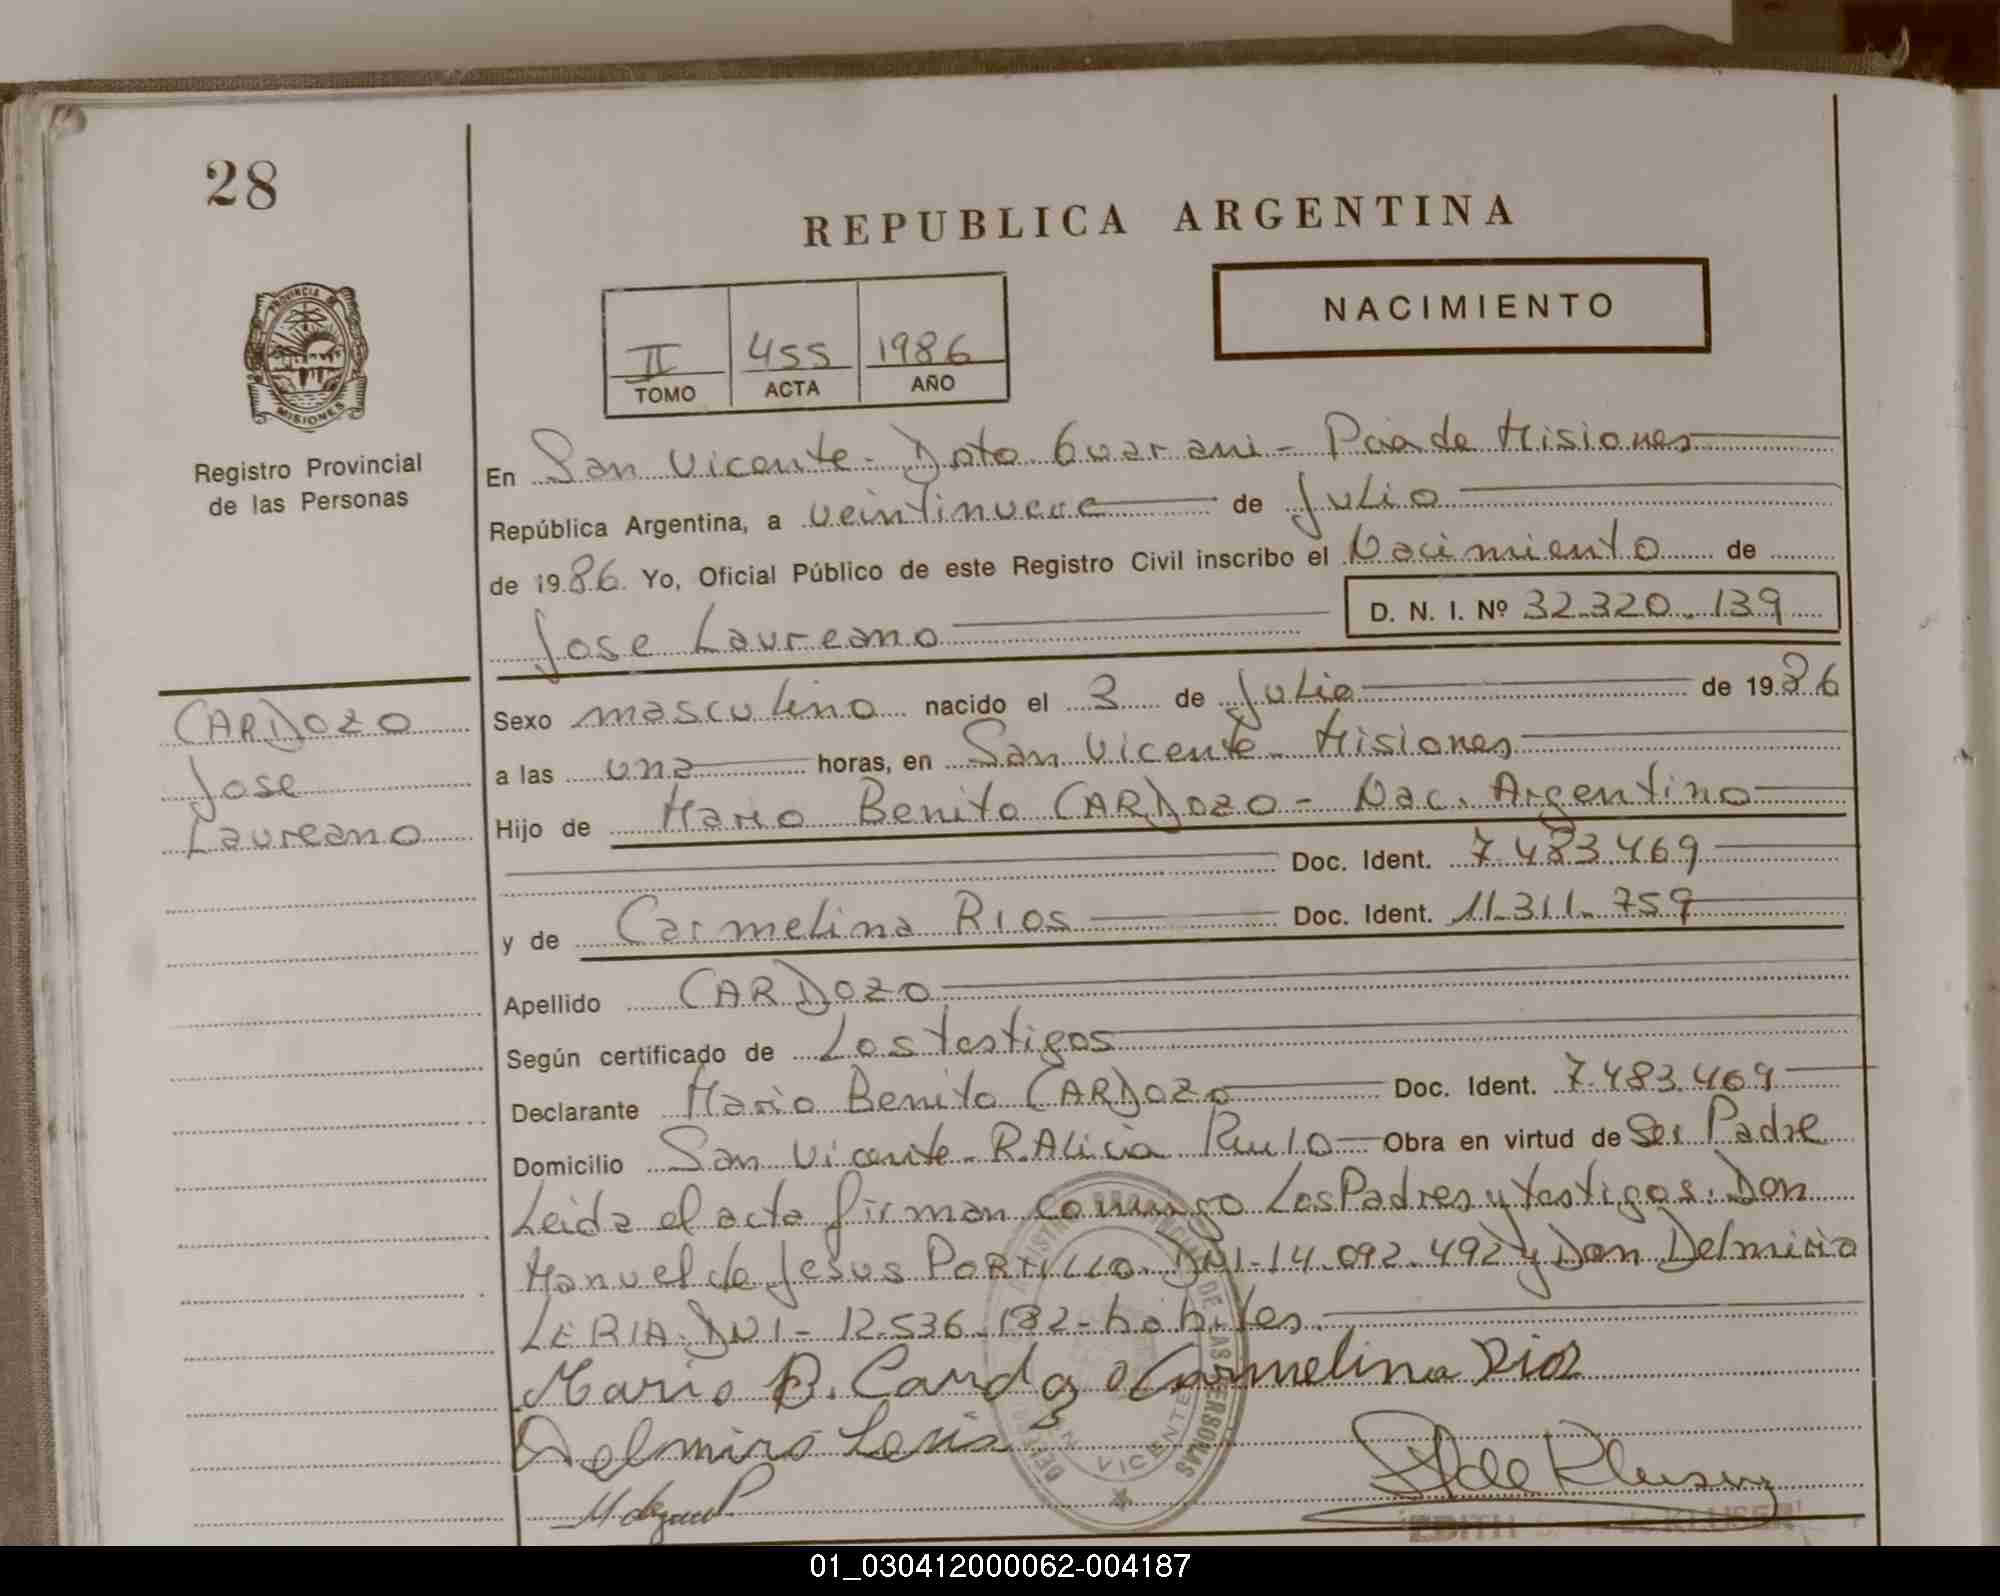 28
REPUBLICA ARGENTINA
NACIMIENTO
II 455 1986
TOMO ACTA AÑO
PROVINCIA DE
MISIONES
Registro Provincial
de las Personas
En San Vicente - Dpto Guarani - Pcia de Misiones
República Argentina, a veintinueve de Julio
de 1986. Yo, Oficial Público de este Registro Civil inscribo el Nacimiento de
Jose Laureano D. N. I. Nº 32.320.139
CARDOZO
Jose
Laureano
Sexo masculino nacido el 3 de Julio de 1986
a las una horas, en San Vicente - Misiones
Hijo de Mario Benito CARDOZO - Nac. Argentino
Doc. Ident. 7.483.469
y de Carmelina RIOS Doc. Ident. 11.311.759
Apellido CARDOZO
Según certificado de Los testigos
Declarante Mario Benito CARDOZO Doc. Ident. 7.483.469
Domicilio San Vicente - R. Alicia Obra en virtud de Ser Padre
Leida el acta firman conmigo Los Padres y testigos: Don
Manuel de Jesus PORTILLO. DNI - 14.092.492 y Don Delmirio
LERIA. DNI - 12.536.182 - habiles.
Mario B. Cardozo Carmelina Rios
Delmiro Leria
REGISTRO PROVINCIAL DE LAS PERSONAS
SAN VICENTE
EDITH KLUSER
01_030412000062-004187